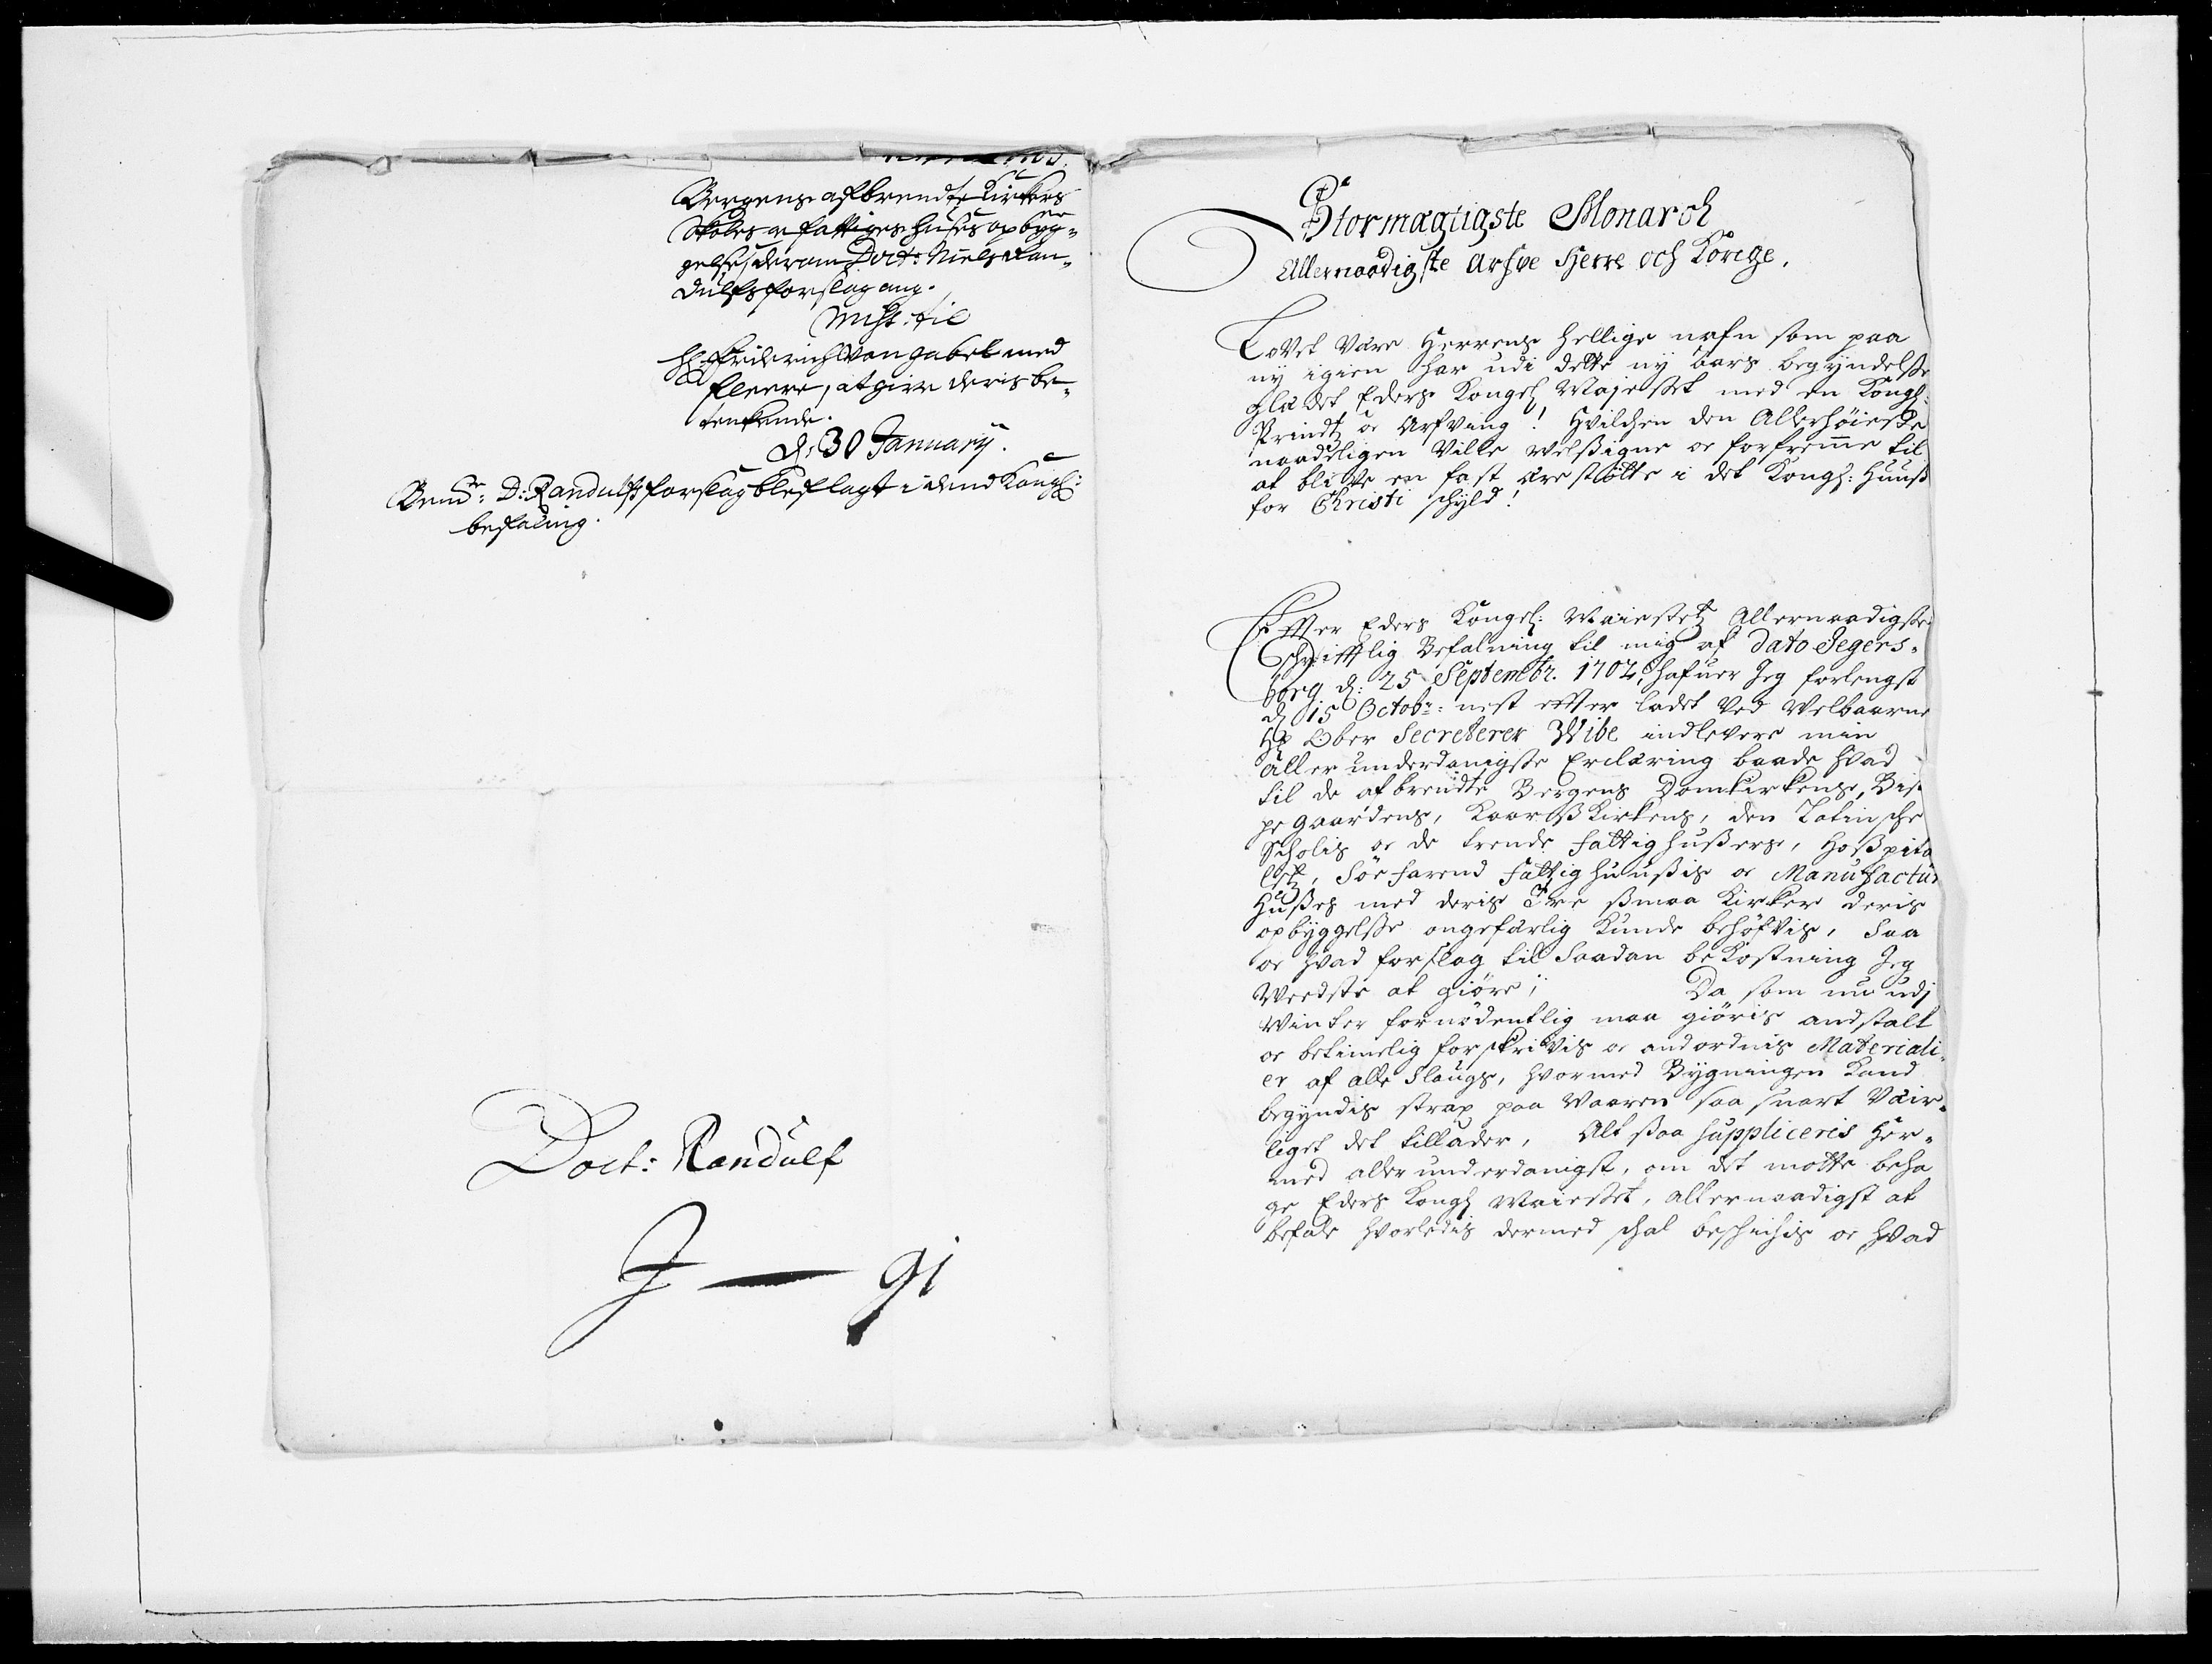 Bergens afbrendte Kirkers
Skoles oc fattiges huses opbyg-
gelse, derom Doct: Niels Ran-
dulfs forslag ang.
Miss: til
H: Friderich Von Gabel med
fleere, at give deris be-
tenkende.
d: 30 January.
Bemte: D: Randulfs forslag blef lagt i dend Kongl:
befaling.
Doct: Randulf
J — 91
Stormægtigste Monarch
Allernaadigste Arfve Herre och Konge.
Lovet være Herrens hellige nafn som paa
ny igien har udi dette ny aars begyndelsse
glædet Eders Kongel Majestet med en Kongl:
Prindtz oc Arfving! Hvilchen den Allerhøieste
naadeligen ville velssigne oc forfremme til
at blive en fast ærestøtte i det Kongl: Huuss
for Christi schyld!
Effter Eders Kongel: Maiestetz Allernaadigste
schrifftlig Befalning til mig af dato Jegers-
borg d: 25 Septembr. 1702, hafuer Jeg forlengst
d 15 Octobr: nest effter ladet ved Velbaarne
Hr Ober Secreterer Wibe indlevere min
aller underdanigste Erclæring baade hvad
til de afbrendte Bergens Domkirkens, Bis-
pe gaardens, Kaarsskirkens, den Latinsche
Scholis oc de trende fattighussers, Hosspita
letz, Søefarend fattighuussis oc Manufactur
Husses med deris Tre ssmaa Kirker deris
opbyggelsse ongefærlig kunde behøfvis, saa
oc hvad forslag til saadan bekostning Jeg
Veedste at giøre; Da som nu udj
Vinter fornødentlig maa giøris andstalt
oc betimelig forskrivis oc andordnis Materiali-
er af alle slaugs, hvormed Bygningen kand
begyndis strax paa Vaaren saa snart Vær-
liget det tillader, Alt ssaa suppliceris Her-
med aller underdanigst, om det motte beha
ge Eders Kongl Maiestet, allernaadigst at
befale hvorledis dermed schal beschichis oc hvad